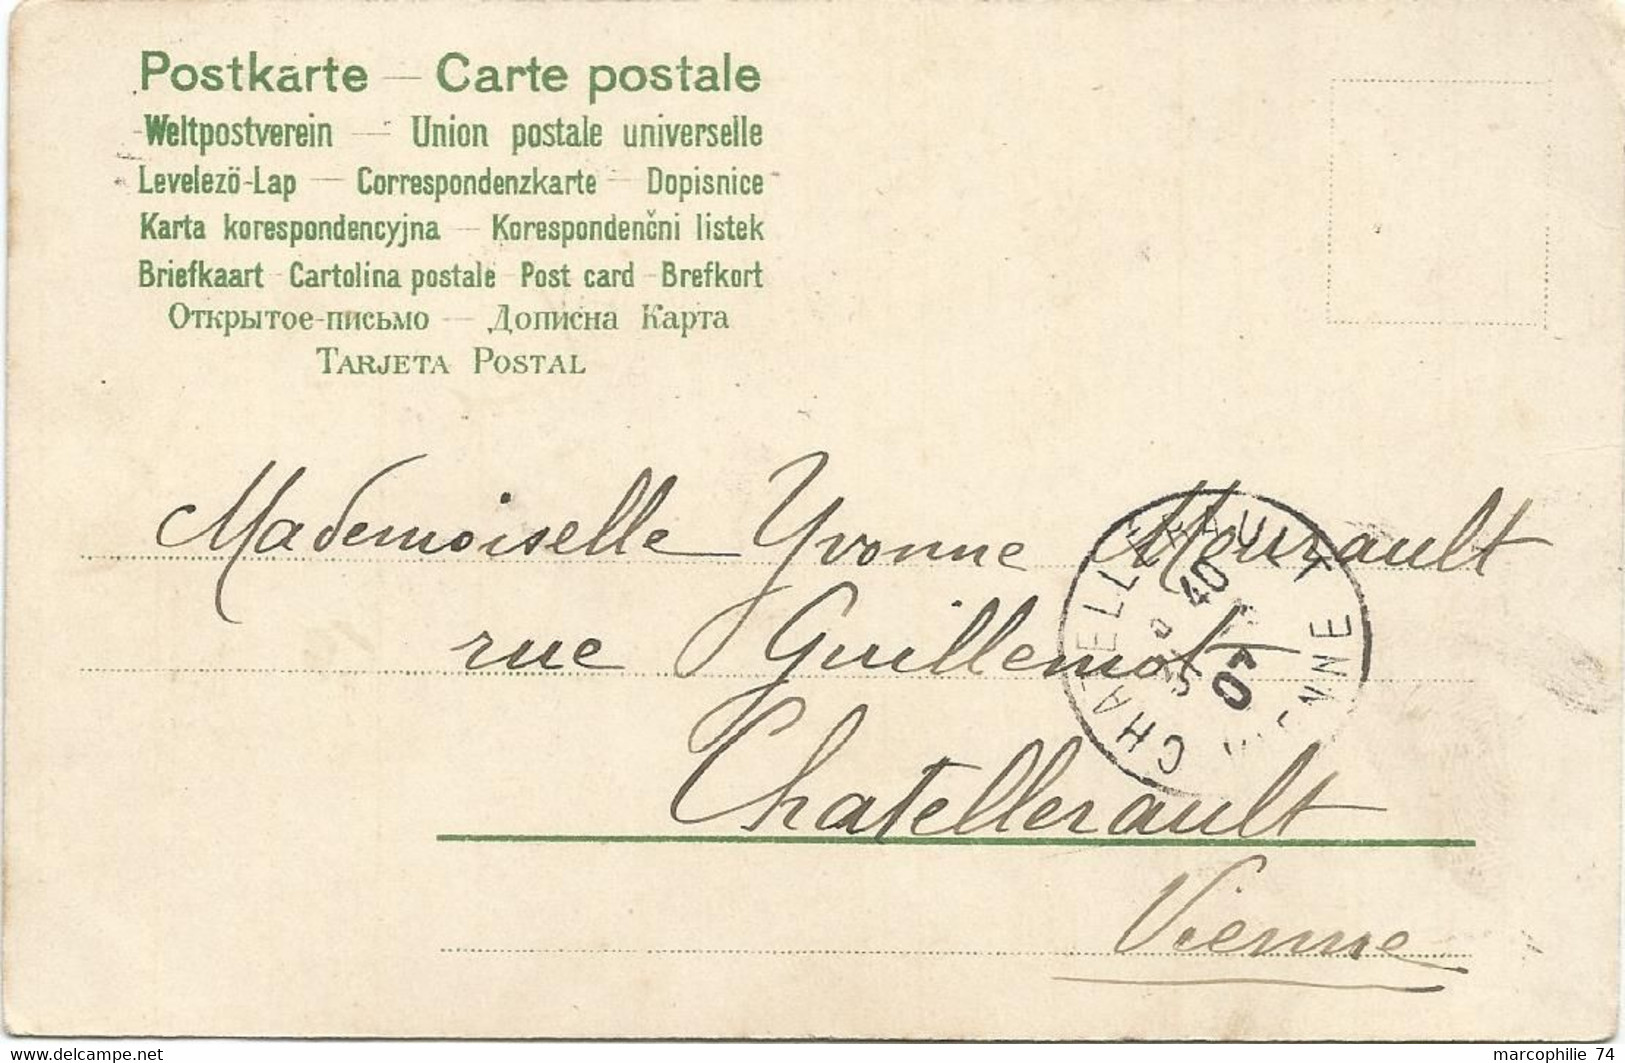 Postkarte — Carte postale
Weltpostverein — Union postale universelle
Levelezö-Lap — Correspondenzkarte — Dopisnice
Karta korespondencyjna — Korespondenčni listek
Briefkaart - Cartolina postale - Post card - Brefkort
Открытое-письмо — Дописна Карта
Tarjeta Postal
Mademoiselle Yvonne Mourault
rue Guillemot
Chatellerault
Vienne
CHATELLERAULT
40
07
VIENNE
www.delcampe.net
marcophilie 74